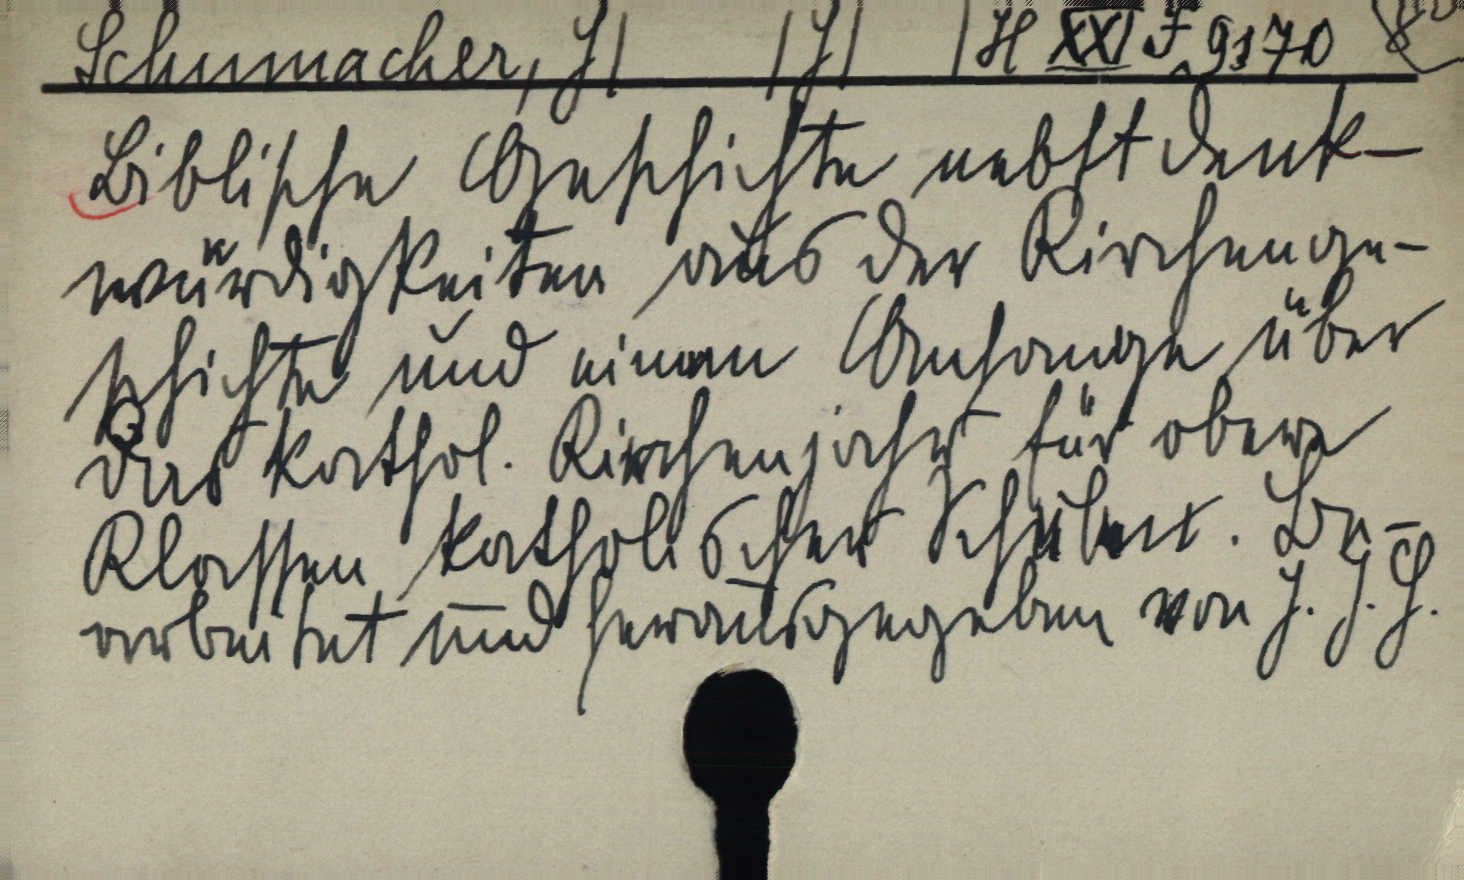 Schumacher, J| |J| |H XXI F 9170 8°
Biblische Geschichte nebst Denk-
würdigkeiten aus der Kirchenge-
schichte und einem Anhange über
das kathol. Kirchenjahr für obere
Klassen katholischer Schulen. Be-
arbeitet und herausgegeben von J. J. H.